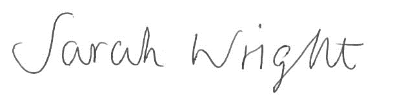 Sarah Wright